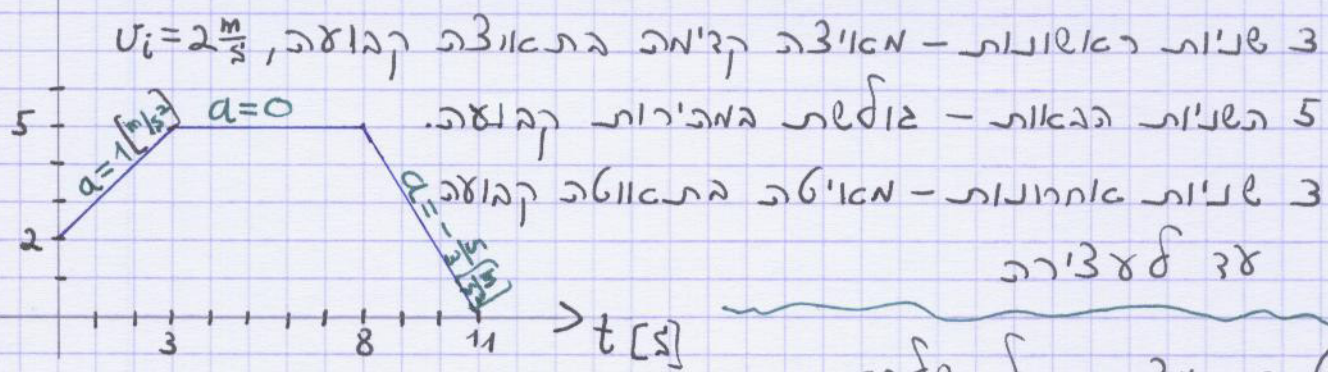 3 שניות ראשונות - מאיצה קדימה בתאוצה קבועה, vᵢ=2 m/s
5 השניות הבאות - גולשת במהירות קבועה.
3 שניות אחרונות - מאיטה בתאוטה קבועה
עד לעצירה
5
2
a=1[m/s²]
a=0
a=-5/3[m/s²]
3 8 11
t [s]